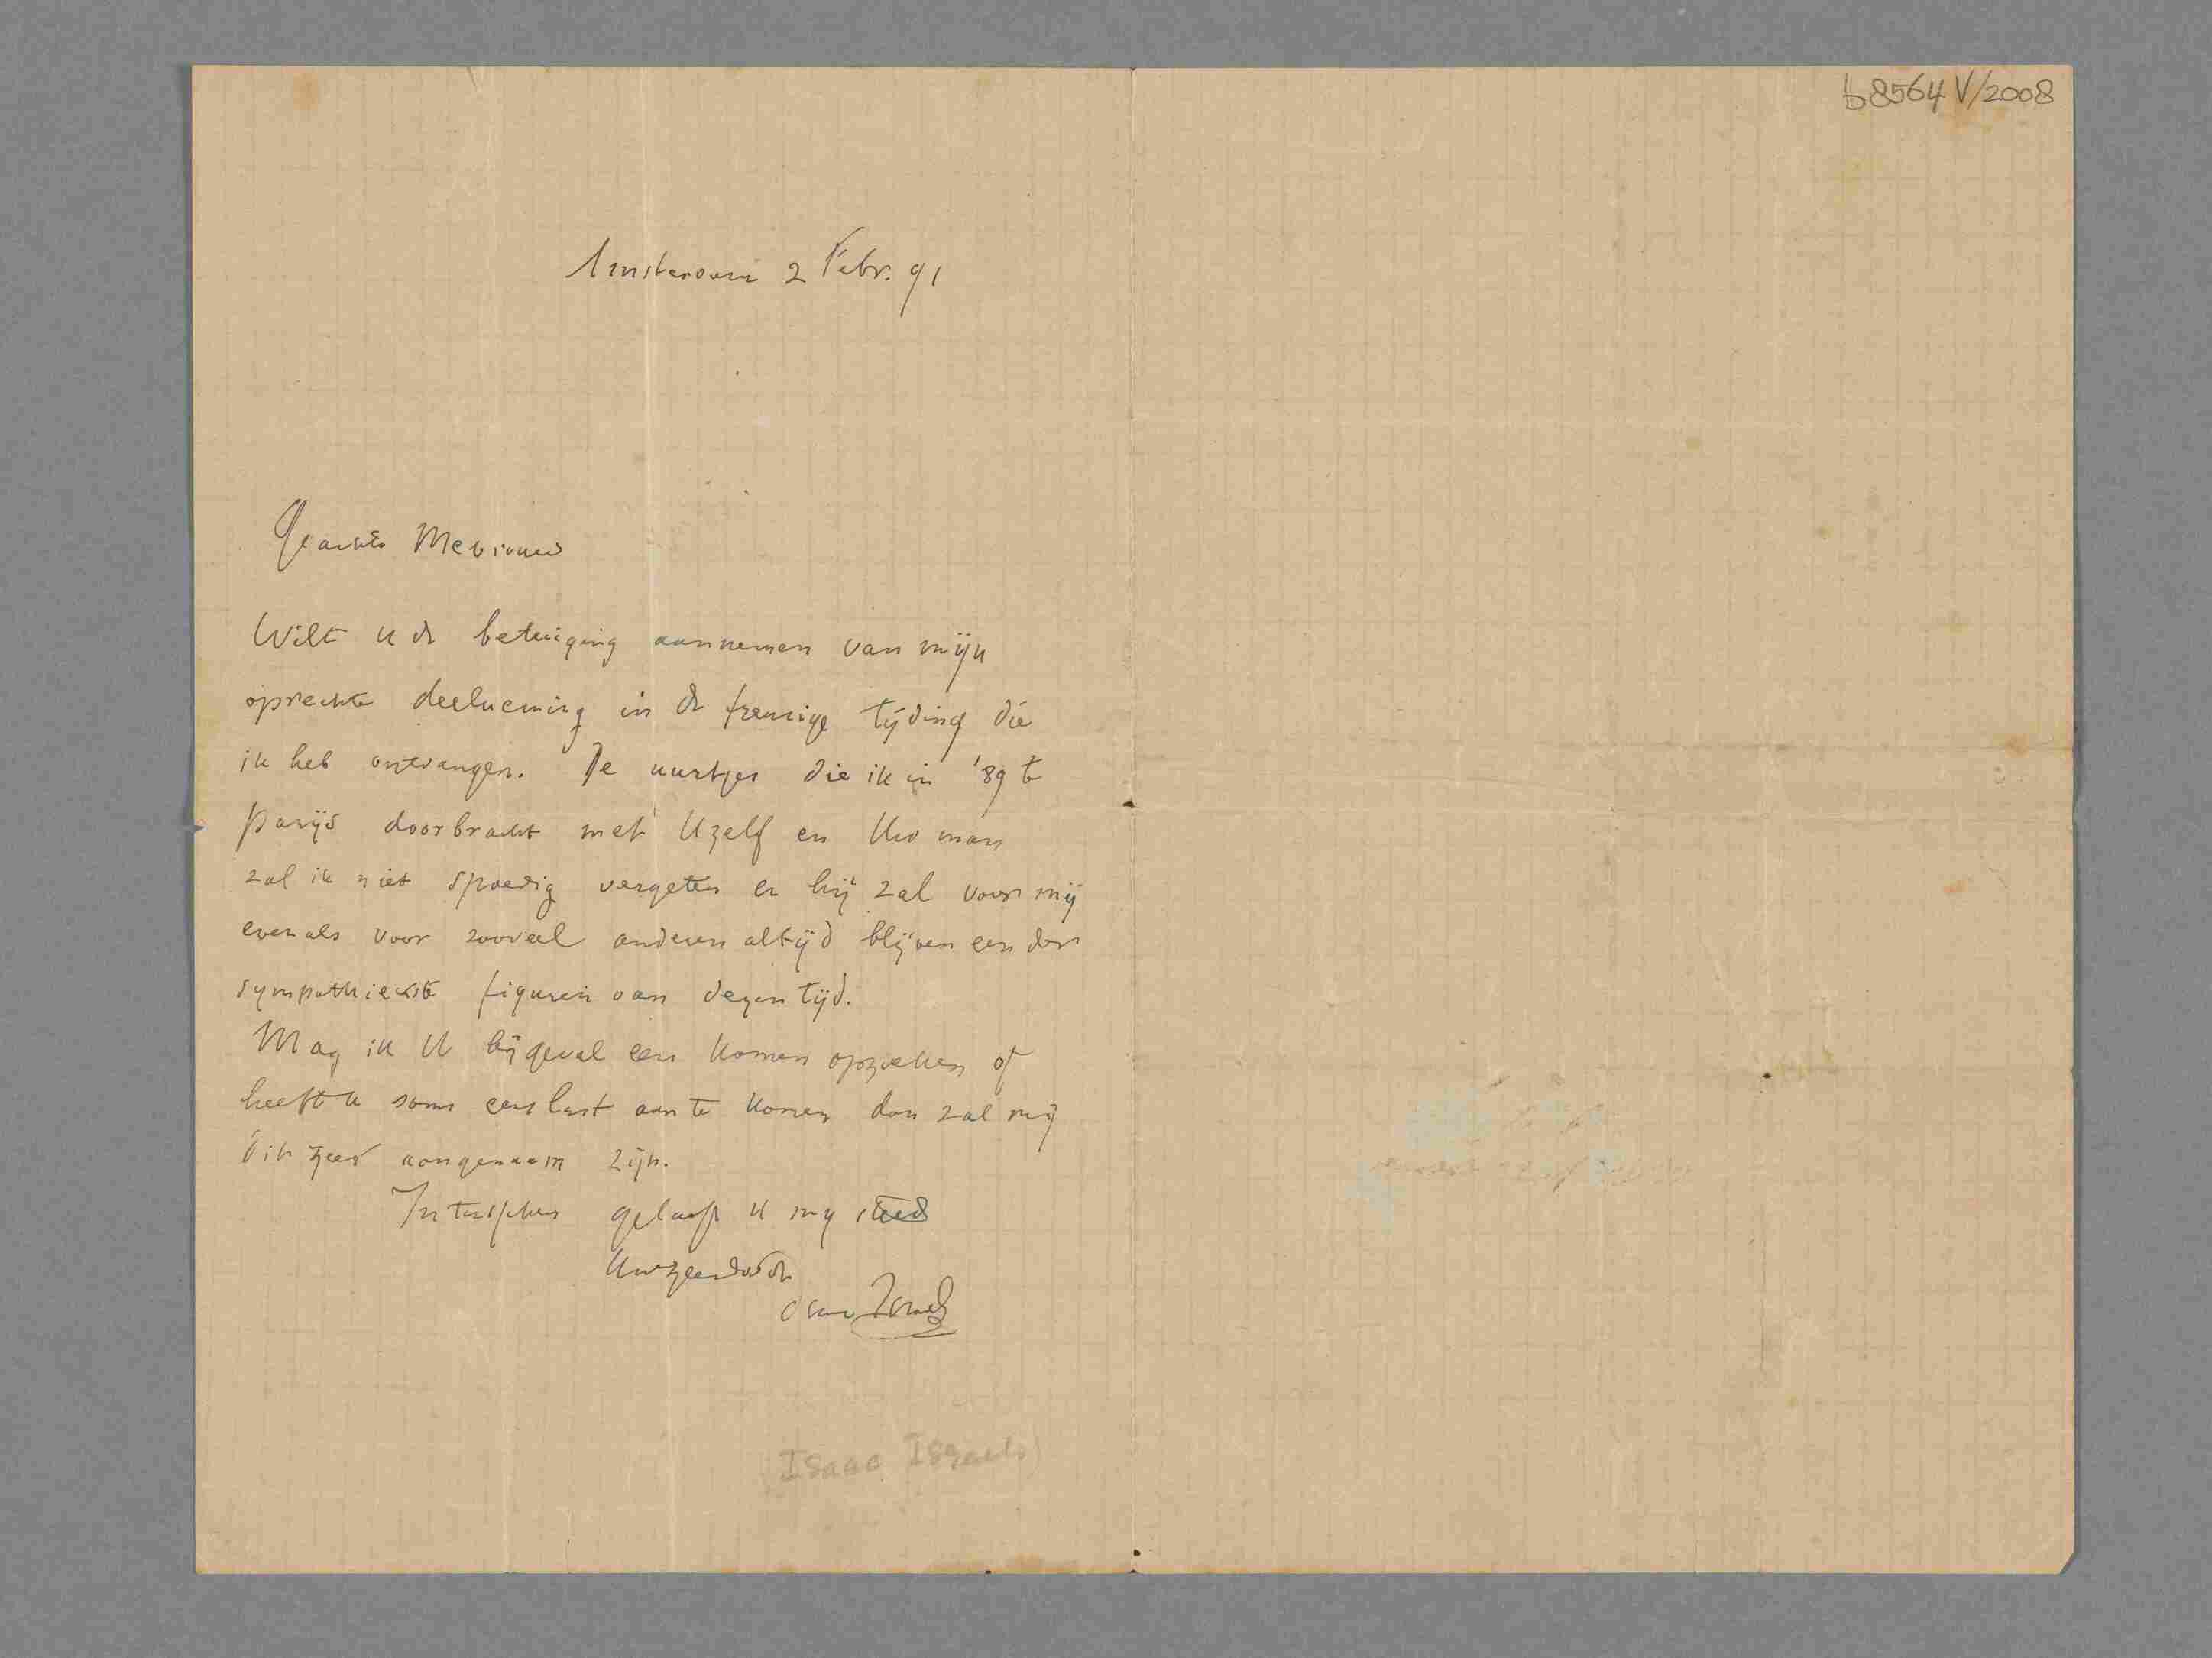 b8564 V/2008
Amsterdam 2 Febr. 91
Geachte Mevrouw
Wilt u de betuiging aannemen van mijn
oprechte deelneming in de treurige tijding die
ik heb ontvangen. De uurtjes die ik in '89 te
Parijs doorbracht met Uzelf en Uw man
zal ik niet spoedig vergeten en hij zal voor mij
evenals voor zooveel anderen altijd blijven een der
sympathiekste figuren van dezen tijd.
Mag ik U bijgeval eens komen opzoeken of
heeft u soms eens lust aan te komen dan zal mij
dit zeer aangenaam zijn.
Intusschen geloof u mij steeds
Uw zeer dw
Isaac Israels
Isaac Israels